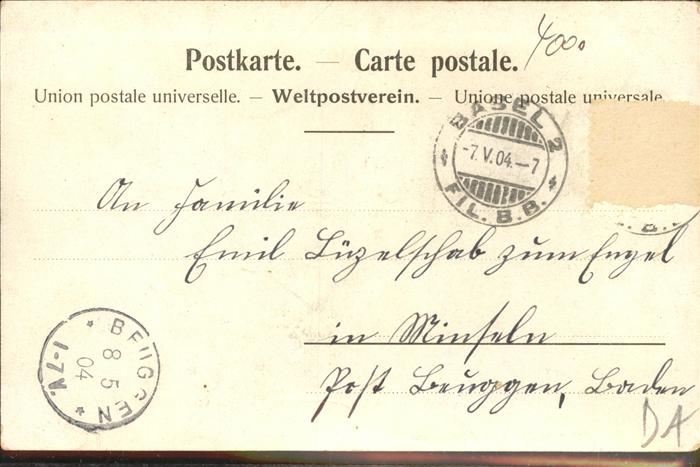 400.
Postkarte. — Carte postale.
Union postale universelle. — Weltpostverein. — Unione postale universale
BASEL 2
-7.V.04.—7
FIL. B.B.
An Familie
Emil Lüzelschab zum Engel
in Minseln
Post Beuggen, Baden
BEUGGEN
8 5
04
1-7N.
DA